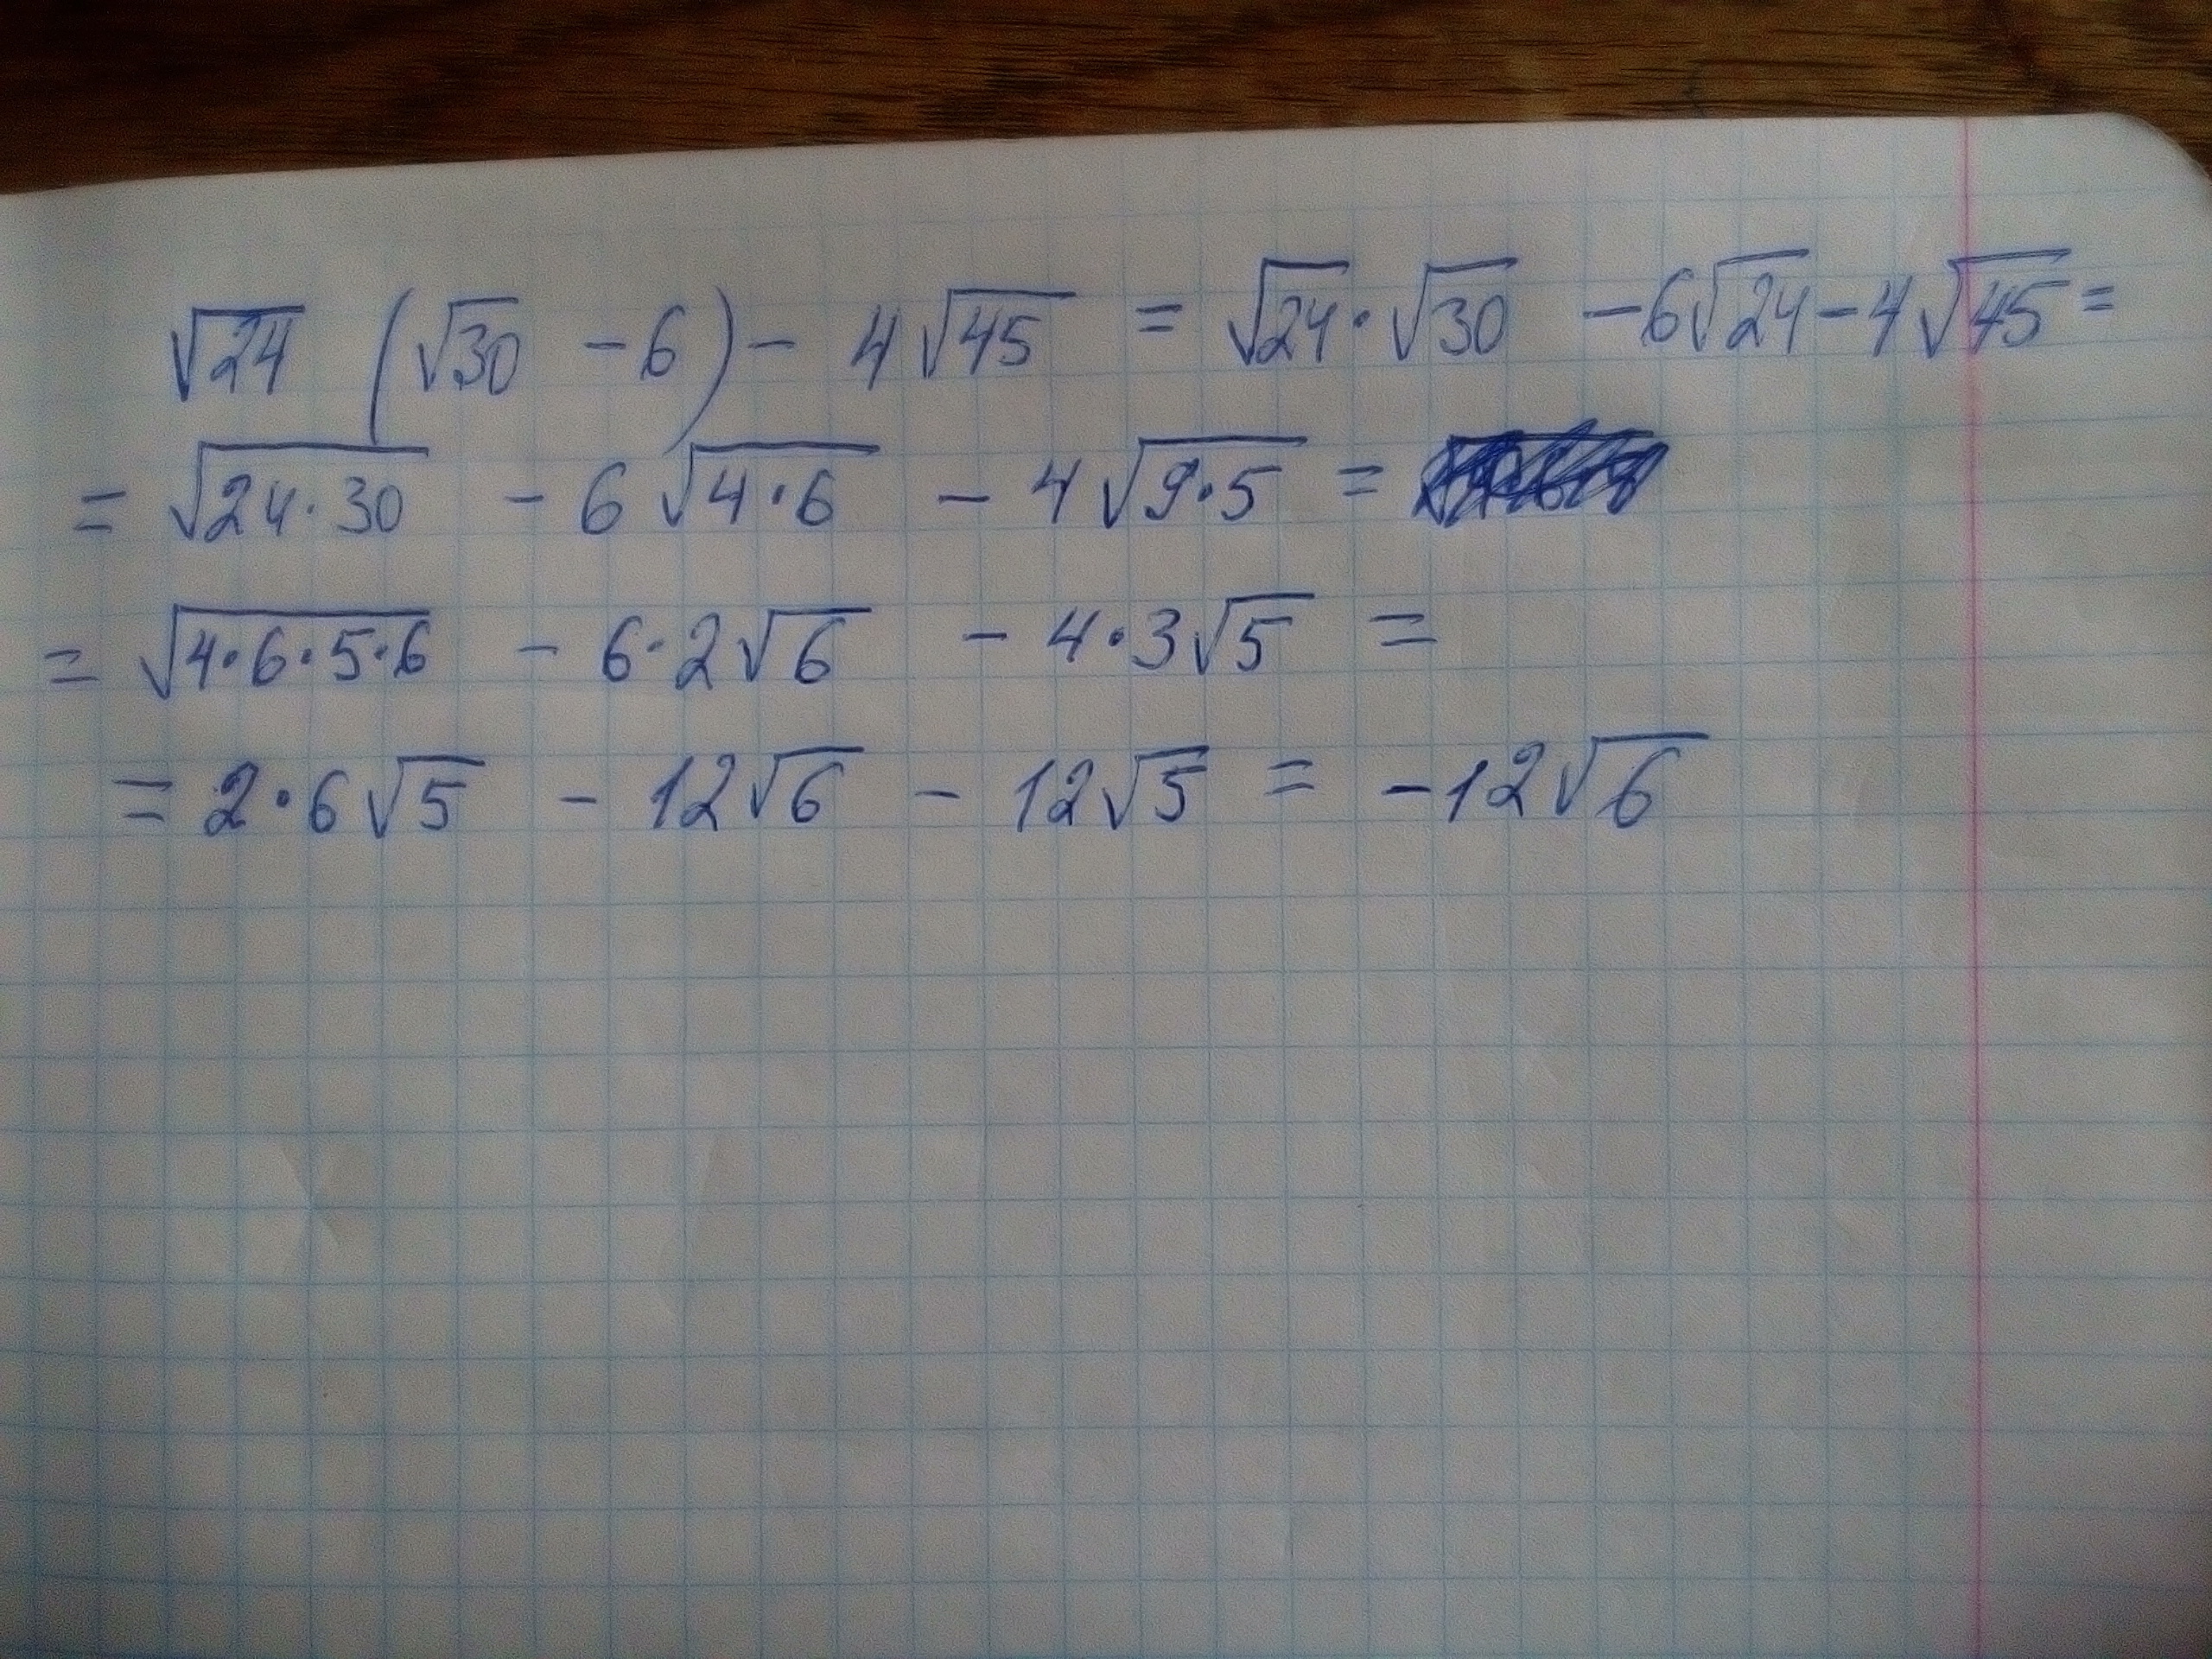 √24 (√30 - 6) - 4√45 = √24·√30 - 6√24 - 4√45 =
= √24·30 - 6√4·6 - 4√9·5 =
= √4·6·5·6 - 6·2√6 - 4·3√5 =
= 2·6√5 - 12√6 - 12√5 = -12√6